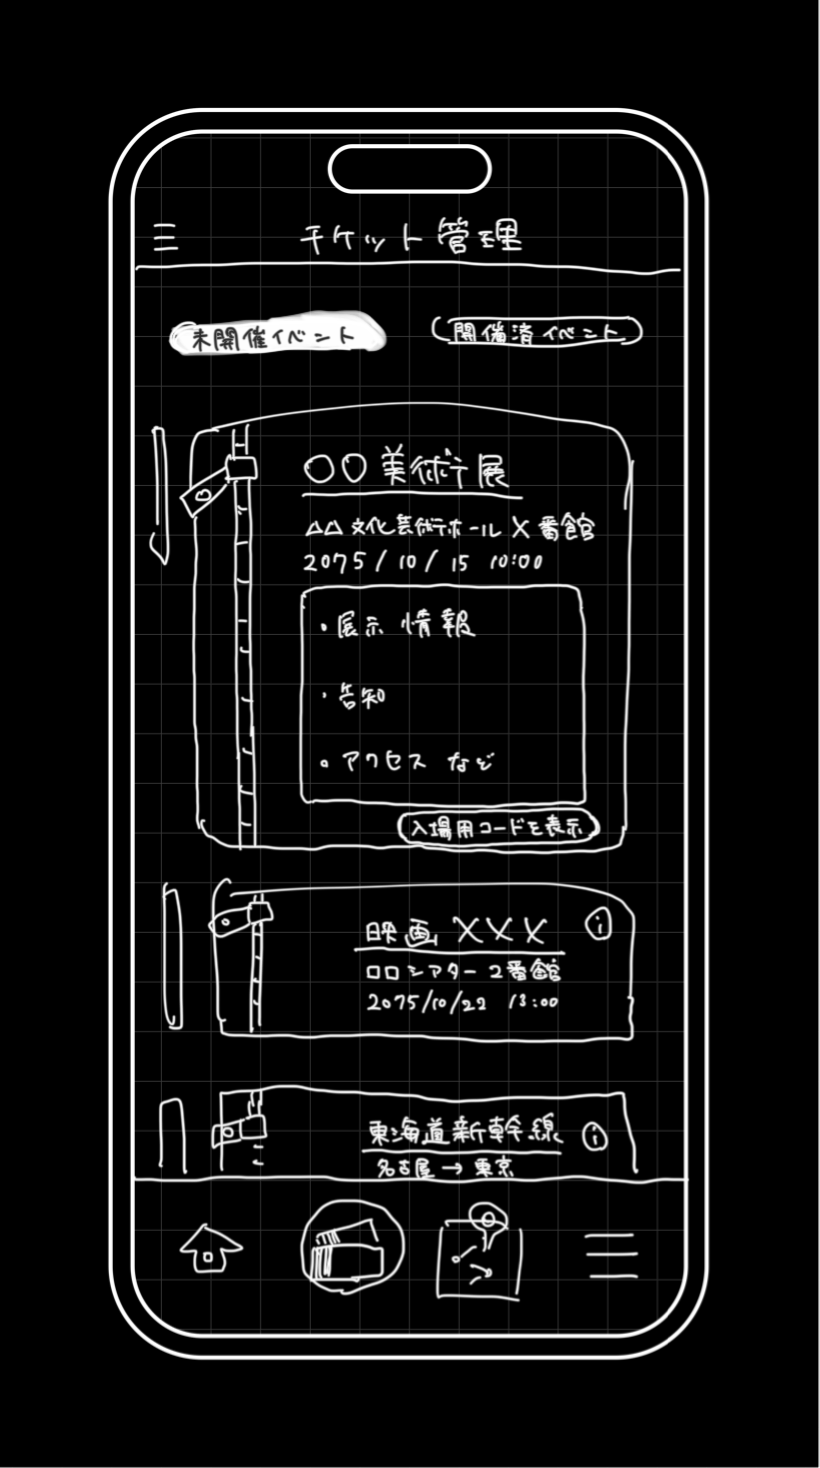 チケット管理
未開催イベント
開催済イベント
〇〇美術展
△△文化芸術ホールX番館
2075/10/15 10:00
・展示情報
・告知
・アクセスなど
入場用コードを表示
映画XXX
i
□□シアター2番館
2075/10/22 13:00
東海道新幹線
i
名古屋→東京